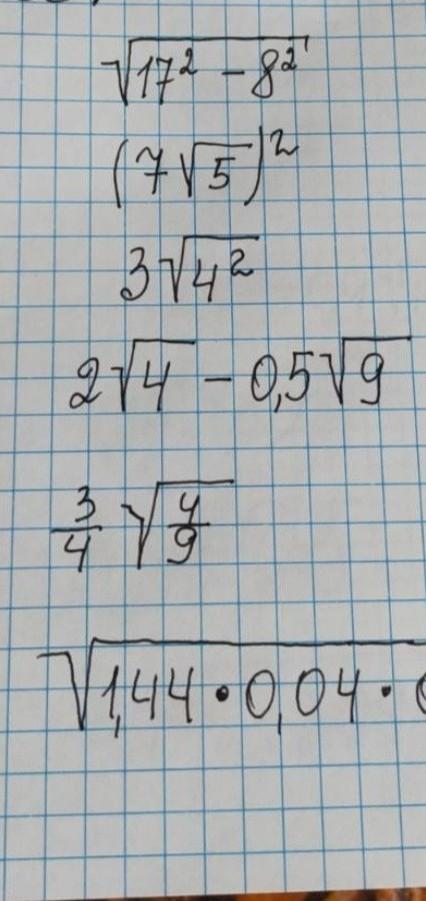 √(17² - 8²)
(7√5)²
3√(4²)
2√4 - 0,5√9
3/4 √(4/9)
√(1,44 • 0,04 •